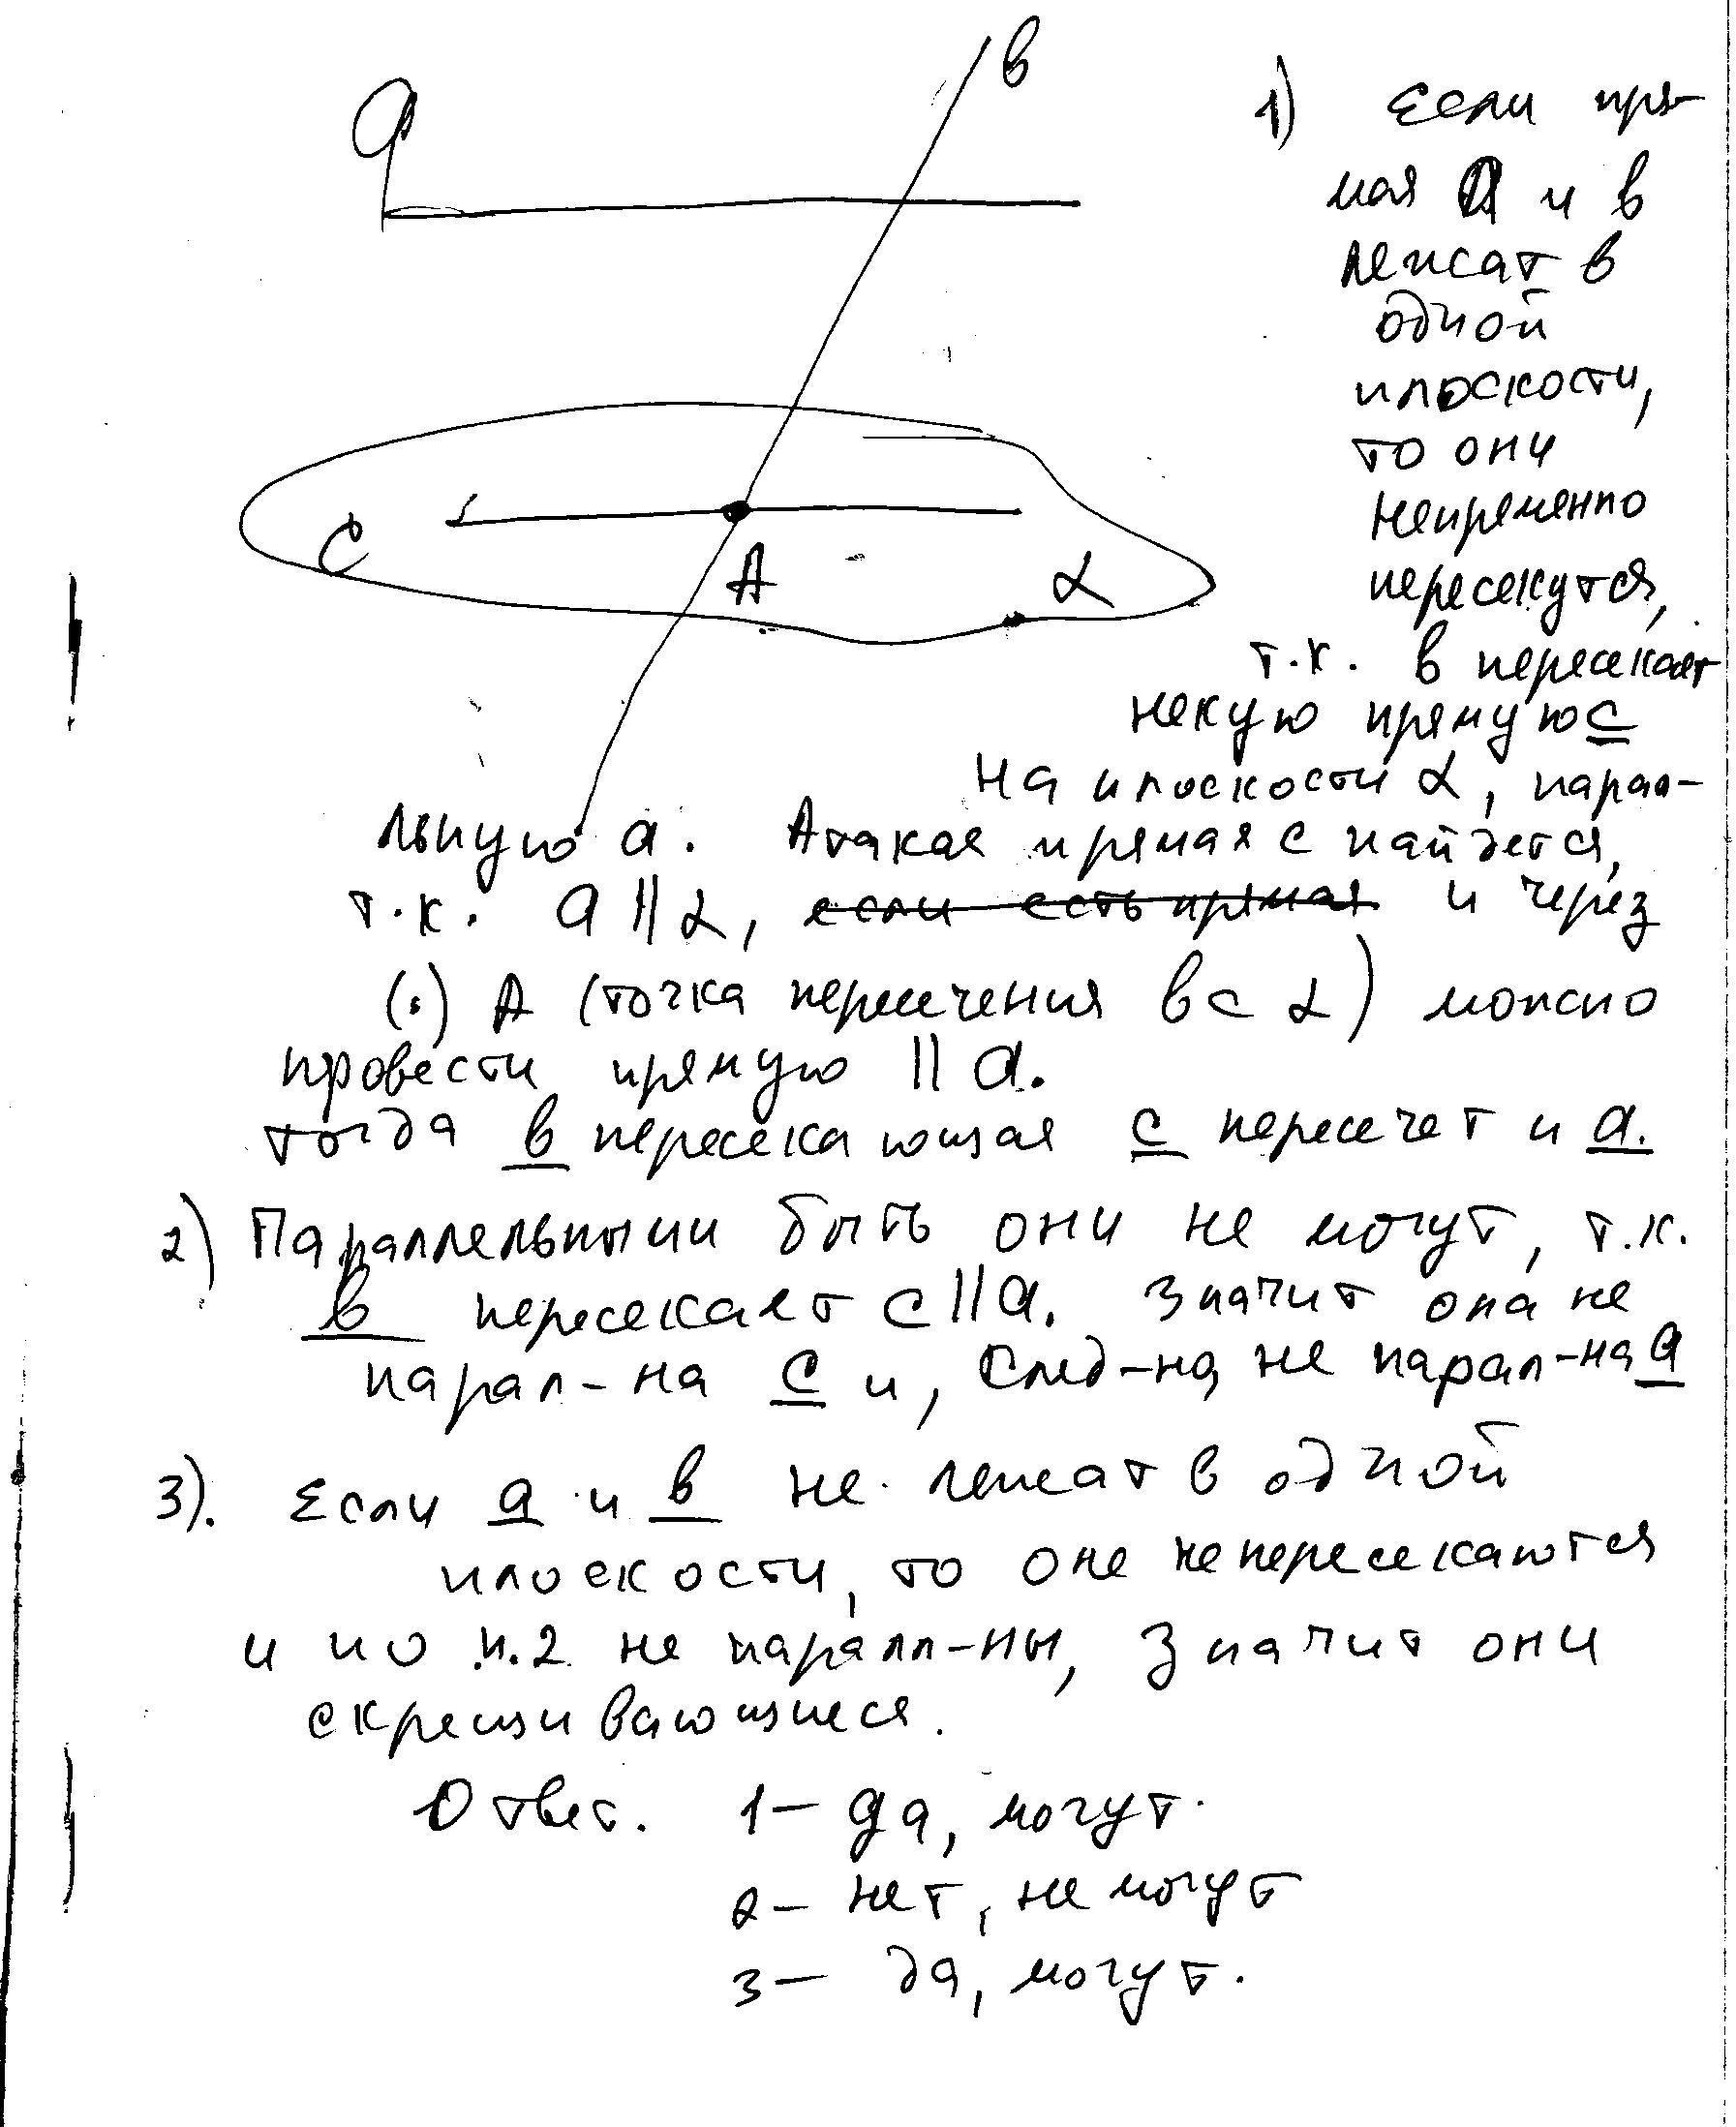 a
в
1) Если пря-
мая а и в
лежат в
одной
плоскости,
то они
непременно
пересекутся,
т.к. в пересекает
некую прямую с
на плоскости α, парал-
льную а. А такая прямая с найдется,
т.к. а || α, если есть прямая и через
(·) А (точка пересечения в с α) можно
провести прямую || а.
тогда в пересекающая с пересечет и а.
С
А
α
2) Параллельными быть они не могут, т.к.
в пересекает с || а. Значит она не
парал-на с и, след-но, не парал-на а
3). Если а и в не лежат в одной
плоскости, то оне не пересекаются
и по п.2 не паралл-ны, значит они
скрещивающиеся.
Ответ. 1 – да, могут.
2 – нет, не могут
3 – да, могут.